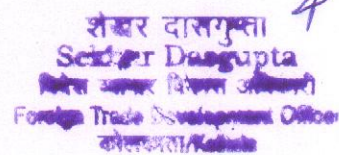 शेखर दासगुप्ता
Sekhar Dasgupta
विदेश व्यापार विकास अधिकारी
Foreign Trade Development Officer
कोलकाता/Kolkata